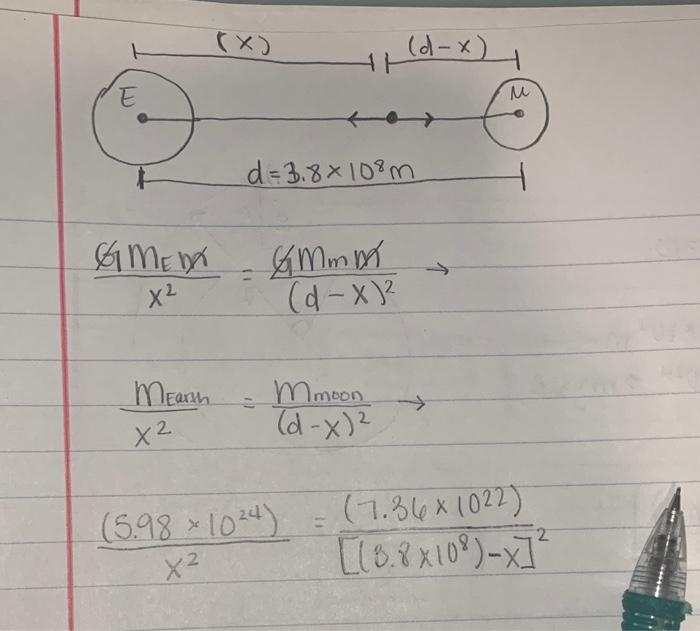 (x) (d-x)
E M
d=3.8×10⁸m
GM_E m / x² = GM_m m / (d-x)² →
M_Earth / x² = M_moon / (d-x)² →
(5.98 × 10²⁴) / x² = (7.36 × 10²²) / [(3.8×10⁸)-x]²